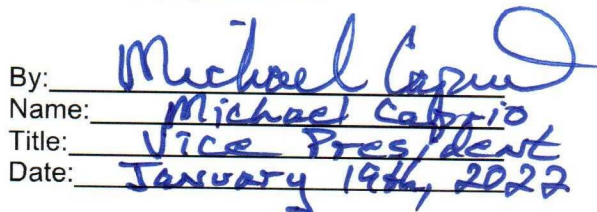 By: Michael Caprio
Name: Michael Caprio
Title: Vice President
Date: January 19th, 2022